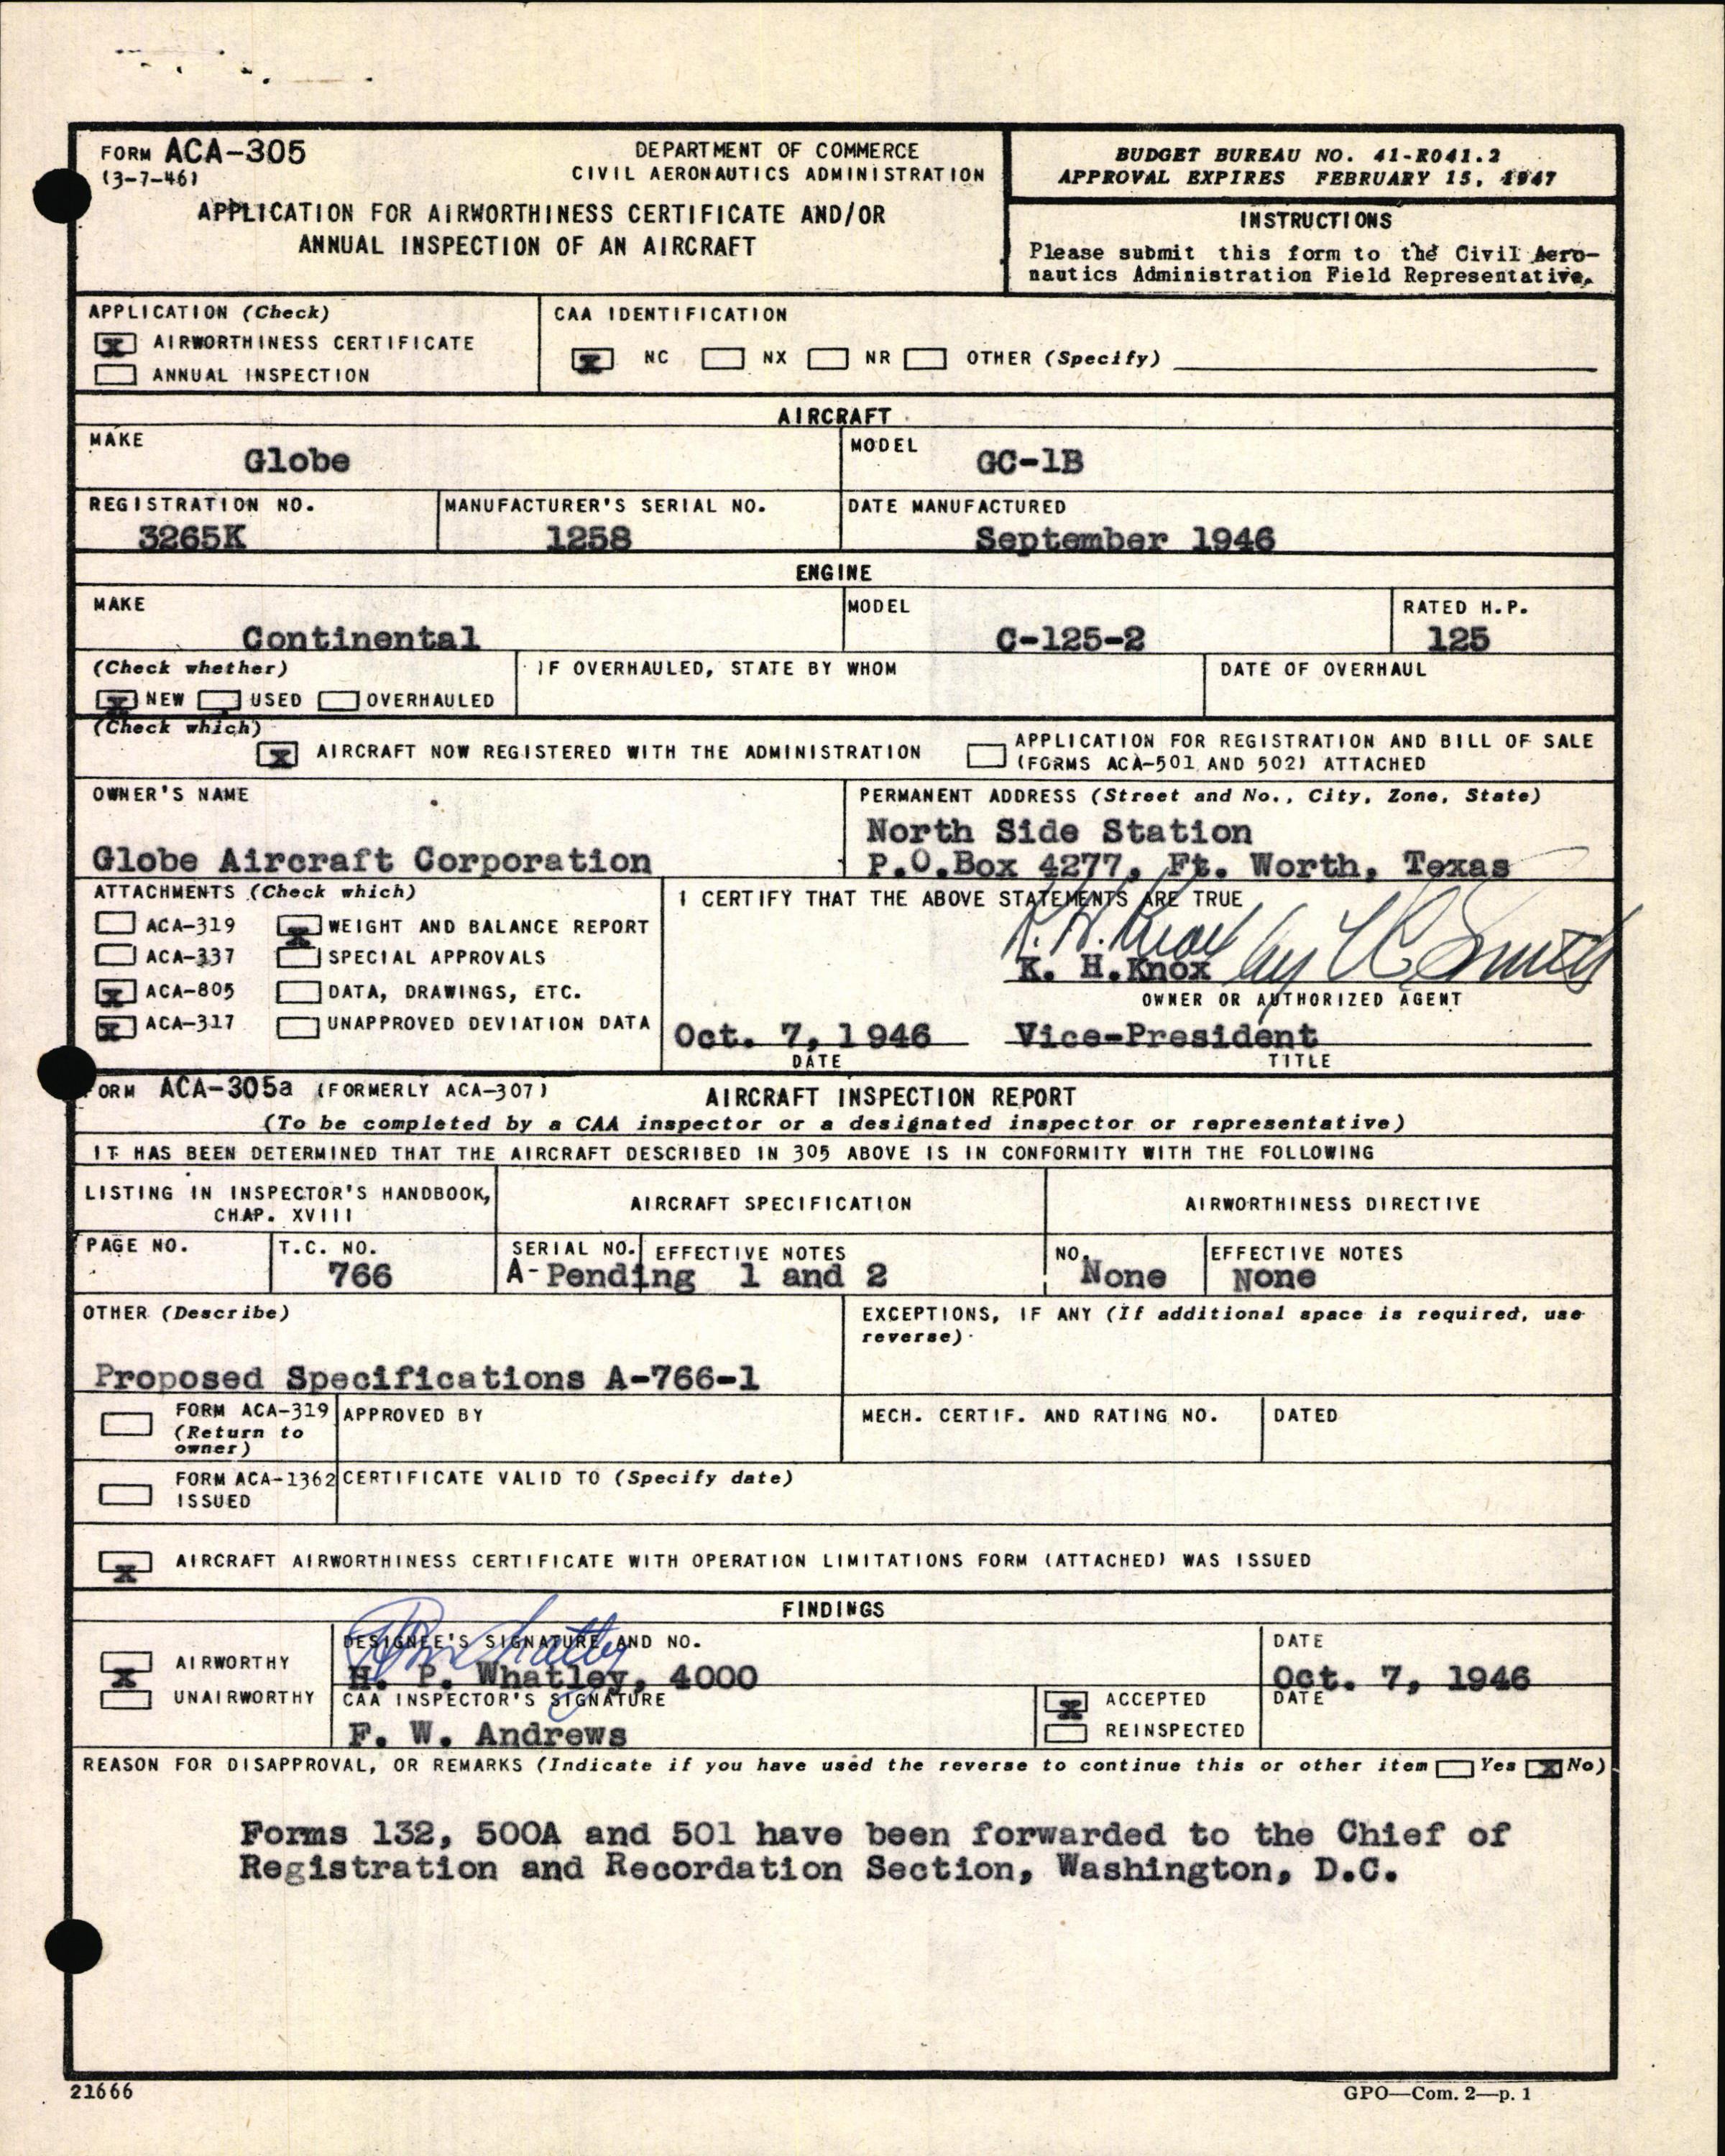 FORM ACA-305
(3-7-46)
DEPARTMENT OF COMMERCE
CIVIL AERONAUTICS ADMINISTRATION
APPLICATION FOR AIRWORTHINESS CERTIFICATE AND/OR
ANNUAL INSPECTION OF AN AIRCRAFT
BUDGET BUREAU NO. 41-R041.2
APPROVAL EXPIRES FEBRUARY 15, 1947
INSTRUCTIONS
Please submit this form to the Civil Aero-
nautics Administration Field Representative.
APPLICATION (Check)
X AIRWORTHINESS CERTIFICATE
ANNUAL INSPECTION
CAA IDENTIFICATION
X NC NX NR OTHER (Specify)
AIRCRAFT
MAKE
Globe
MODEL
GC-1B
REGISTRATION NO.
3265K
MANUFACTURER'S SERIAL NO.
1258
DATE MANUFACTURED
September 1946
ENGINE
MAKE
Continental
MODEL
C-125-2
RATED H.P.
125
(Check whether)
X NEW USED OVERHAULED
IF OVERHAULED, STATE BY WHOM
DATE OF OVERHAUL
(Check which)
X AIRCRAFT NOW REGISTERED WITH THE ADMINISTRATION
APPLICATION FOR REGISTRATION AND BILL OF SALE
(FORMS ACA-501 AND 502) ATTACHED
OWNER'S NAME
Globe Aircraft Corporation
PERMANENT ADDRESS (Street and No., City, Zone, State)
North Side Station
P.O.Box 4277, Ft. Worth, Texas
ATTACHMENTS (Check which)
ACA-319 X WEIGHT AND BALANCE REPORT
ACA-337 SPECIAL APPROVALS
X ACA-805 DATA, DRAWINGS, ETC.
X ACA-317 UNAPPROVED DEVIATION DATA
I CERTIFY THAT THE ABOVE STATEMENTS ARE TRUE
K. H. Knox by L C Smith
K. H.Knox
OWNER OR AUTHORIZED AGENT
Oct. 7, 1946 Vice-President
DATE TITLE
FORM ACA-305a (FORMERLY ACA-307)
AIRCRAFT INSPECTION REPORT
(To be completed by a CAA inspector or a designated inspector or representative)
IT HAS BEEN DETERMINED THAT THE AIRCRAFT DESCRIBED IN 305 ABOVE IS IN CONFORMITY WITH THE FOLLOWING
LISTING IN INSPECTOR'S HANDBOOK,
CHAP. XVIII
AIRCRAFT SPECIFICATION
AIRWORTHINESS DIRECTIVE
PAGE NO.
T.C. NO.
766
SERIAL NO. EFFECTIVE NOTES
A- Pending 1 and 2
NO.
None
EFFECTIVE NOTES
None
OTHER (Describe)
Proposed Specifications A-766-1
EXCEPTIONS, IF ANY (If additional space is required, use
reverse)
FORM ACA-319
(Return to
owner)
APPROVED BY
MECH. CERTIF. AND RATING NO.
DATED
FORM ACA-1362
ISSUED
CERTIFICATE VALID TO (Specify date)
X AIRCRAFT AIRWORTHINESS CERTIFICATE WITH OPERATION LIMITATIONS FORM (ATTACHED) WAS ISSUED
FINDINGS
X AIRWORTHY
UNAIRWORTHY
DESIGNEE'S SIGNATURE AND NO.
HP Whatley
H. P. Whatley, 4000
DATE
Oct. 7, 1946
CAA INSPECTOR'S SIGNATURE
F. W. Andrews
X ACCEPTED
REINSPECTED
DATE
REASON FOR DISAPPROVAL, OR REMARKS (Indicate if you have used the reverse to continue this or other item Yes X No)
Forms 132, 500A and 501 have been forwarded to the Chief of
Registration and Recordation Section, Washington, D.C.
21666
GPO—Com. 2—p. 1